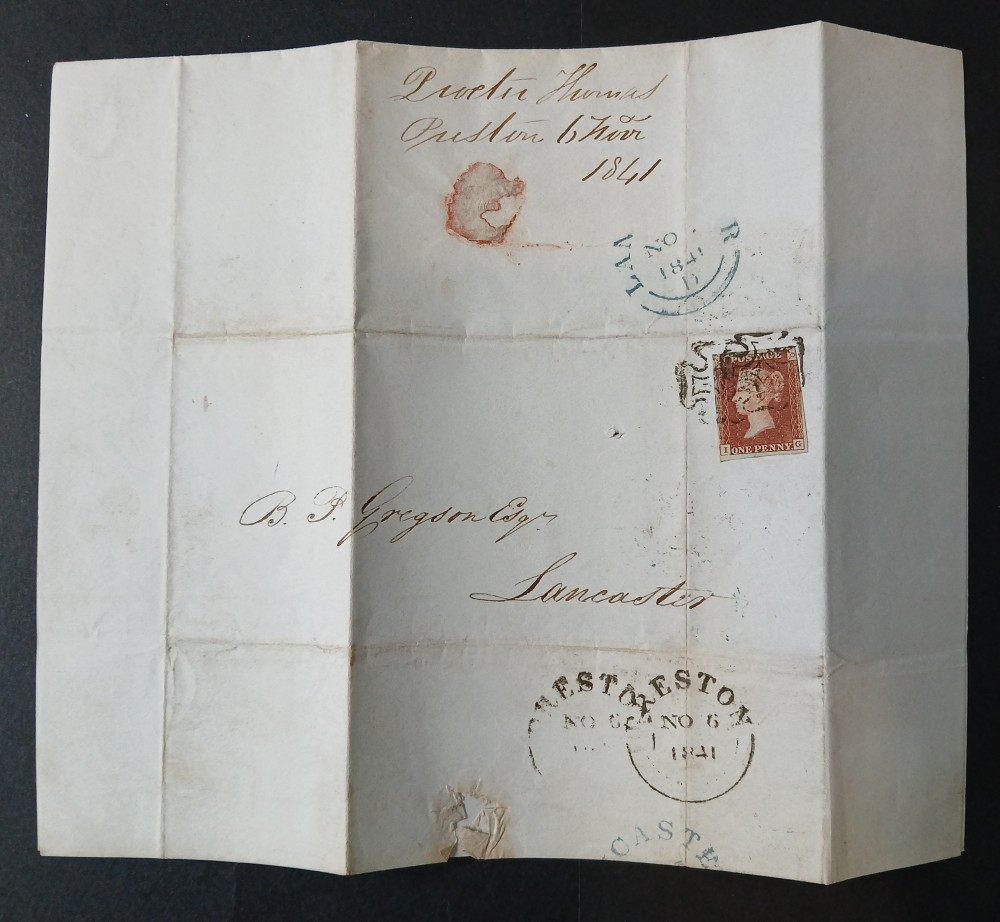 Procter Thomas
Preston 6 Novr
1841
LAN
R
NO
1841
D
POSTAGE
I ONE PENNY G
B. P. Gregson Esqr
Lancaster
PRESTON
NO 6
PRESTON
NO 6
1841
CASTE